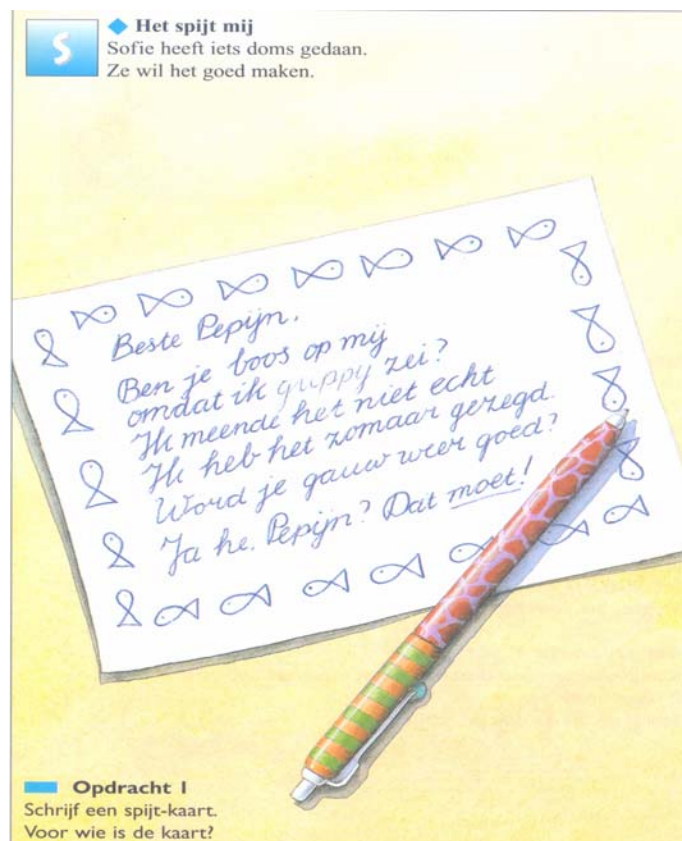 S
Het spijt mij
Sofie heeft iets doms gedaan.
Ze wil het goed maken.
Beste Pepijn,
Ben je boos op mij
omdat ik guppy zei?
Ik meende het niet echt
Ik heb het zomaar gezegd.
Word je gauw weer goed?
Ja he, Pepijn? Dat moet!
Opdracht 1
Schrijf een spijt-kaart.
Voor wie is de kaart?